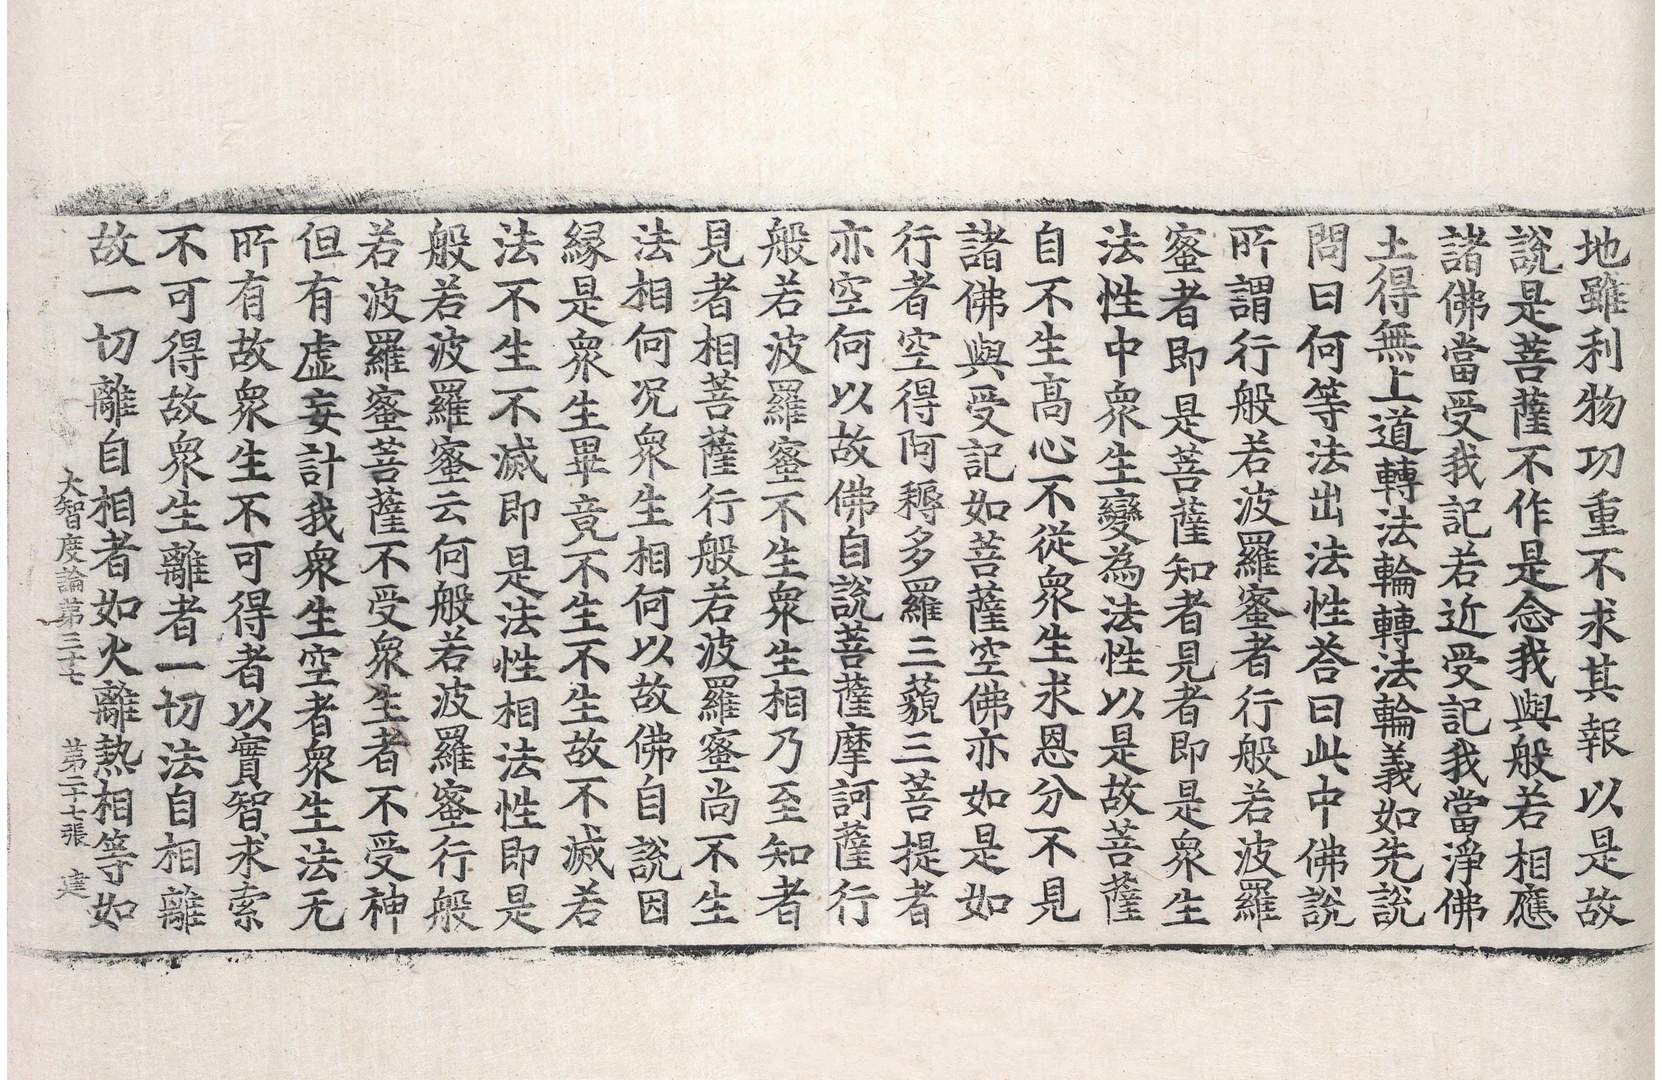 地雖利物功重不求其報以是故
說是菩薩不作是念我與般若相應
諸佛當受我記若近受記我當淨佛
土得無上道轉法輪轉法輪義如先說
問曰何等法出法性荅曰此中佛說
所謂行般若波羅蜜者行般若波羅
蜜者即是菩薩知者見者即是衆生
法性中衆生變為法性以是故菩薩
自不生高心不從衆生求恩分不見
諸佛與受記如菩薩空佛亦如是如
行者空得阿耨多羅三藐三菩提者
亦空何以故佛自說菩薩摩訶薩行
般若波羅蜜不生衆生相乃至知者
見者相菩薩行般若波羅蜜尚不生
法相何況衆生相何以故佛自說因
縁是衆生畢竟不生不生故不滅若
法不生不滅即是法性相法性即是
般若波羅蜜云何般若波羅蜜行般
若波羅蜜菩薩不受衆生者不受神
但有虛妄計我衆生空者衆生法无
所有故衆生不可得者以實智求索
不可得故衆生離者一切法自相離
故一切離自相者如火離熱相等如
大智度論第三十七 第二十七張 達